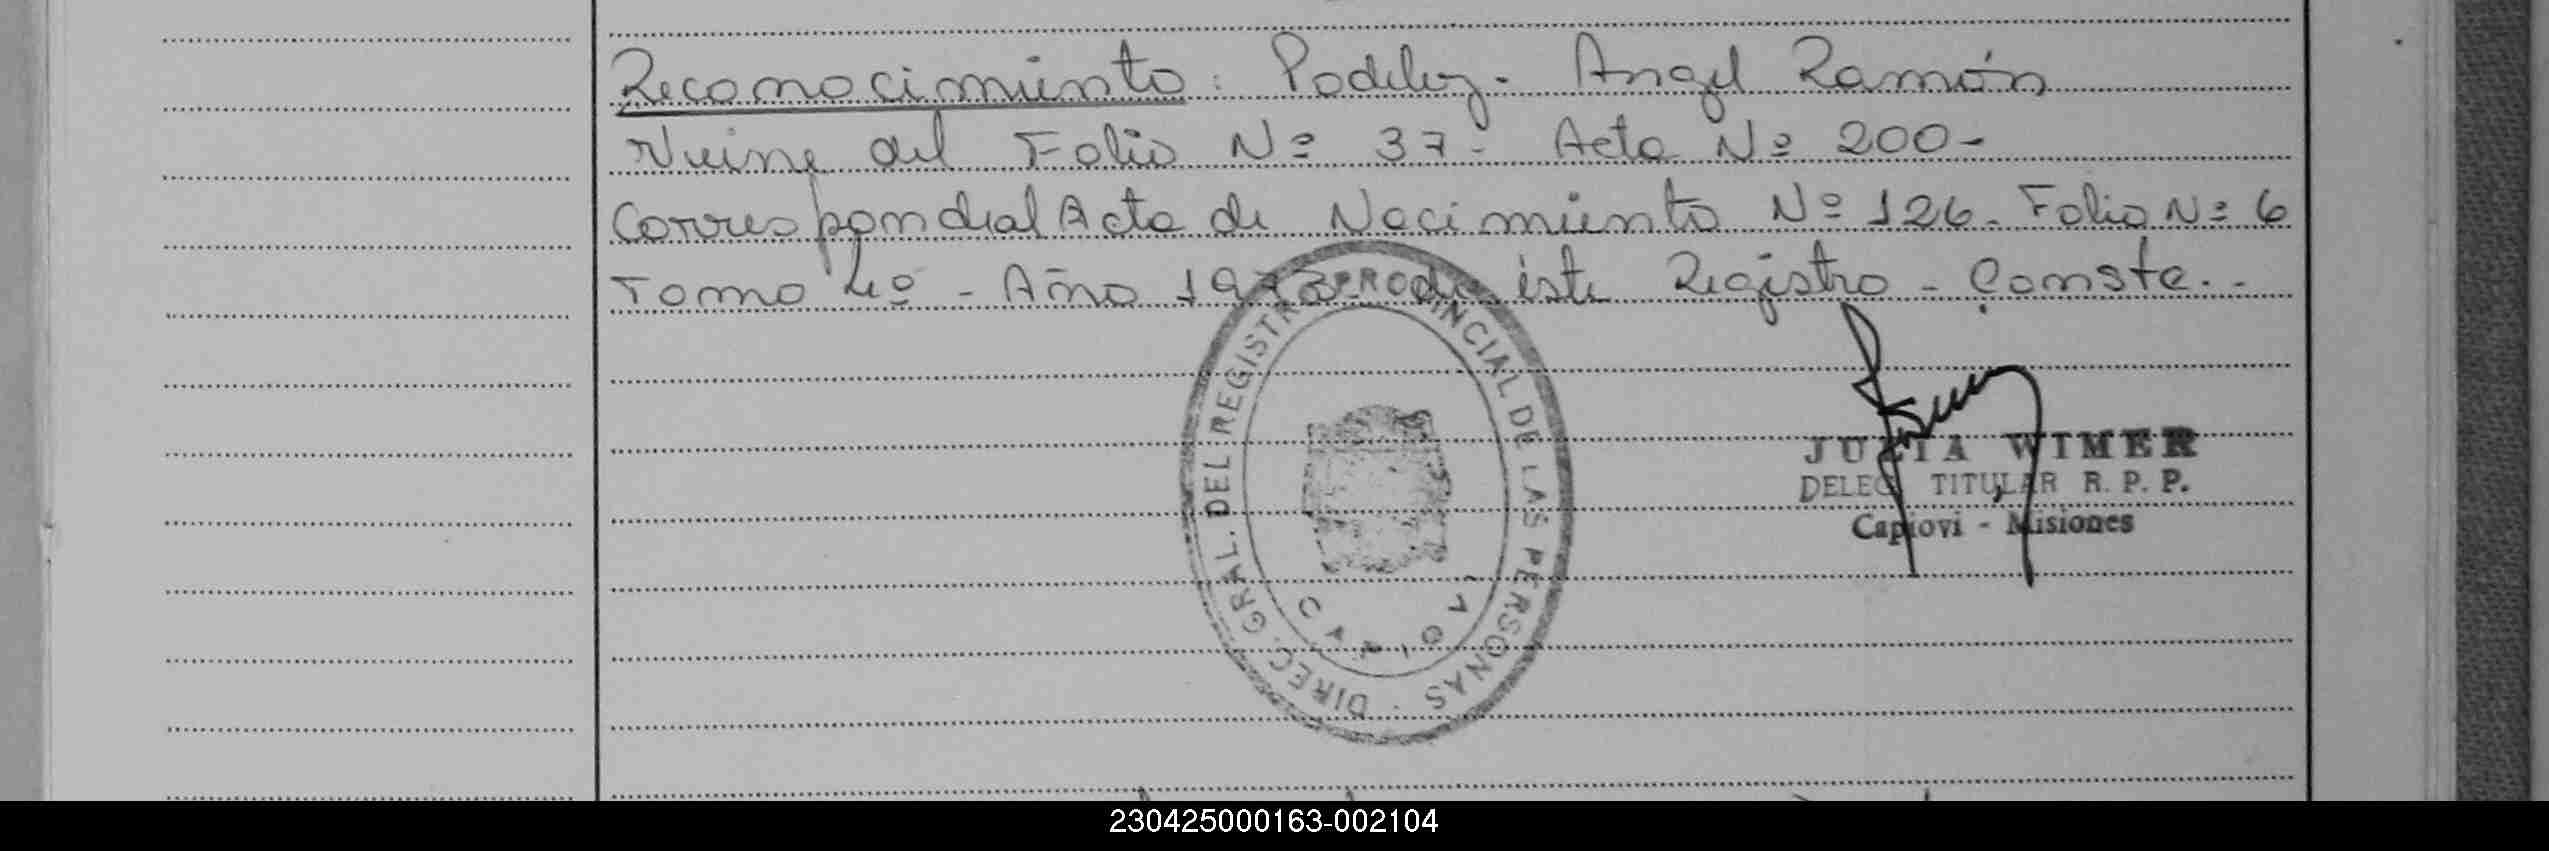 Reconocimiento: Podeley. Angel Ramón
Viene del Folio Nº 37- Acta Nº 200-
Correspond al Acta de Nacimiento Nº 126. Folio Nº 6
Tomo 4º - Año 1973 de éste Registro - Conste.-
DIREC. GRAL. DEL REGISTRO PROVINCIAL DE LAS PERSONAS
CAPIOVI
JULIA WIMER
DELEG. TITULAR R. P. P.
Capiovi - Misiones
230425000163-002104